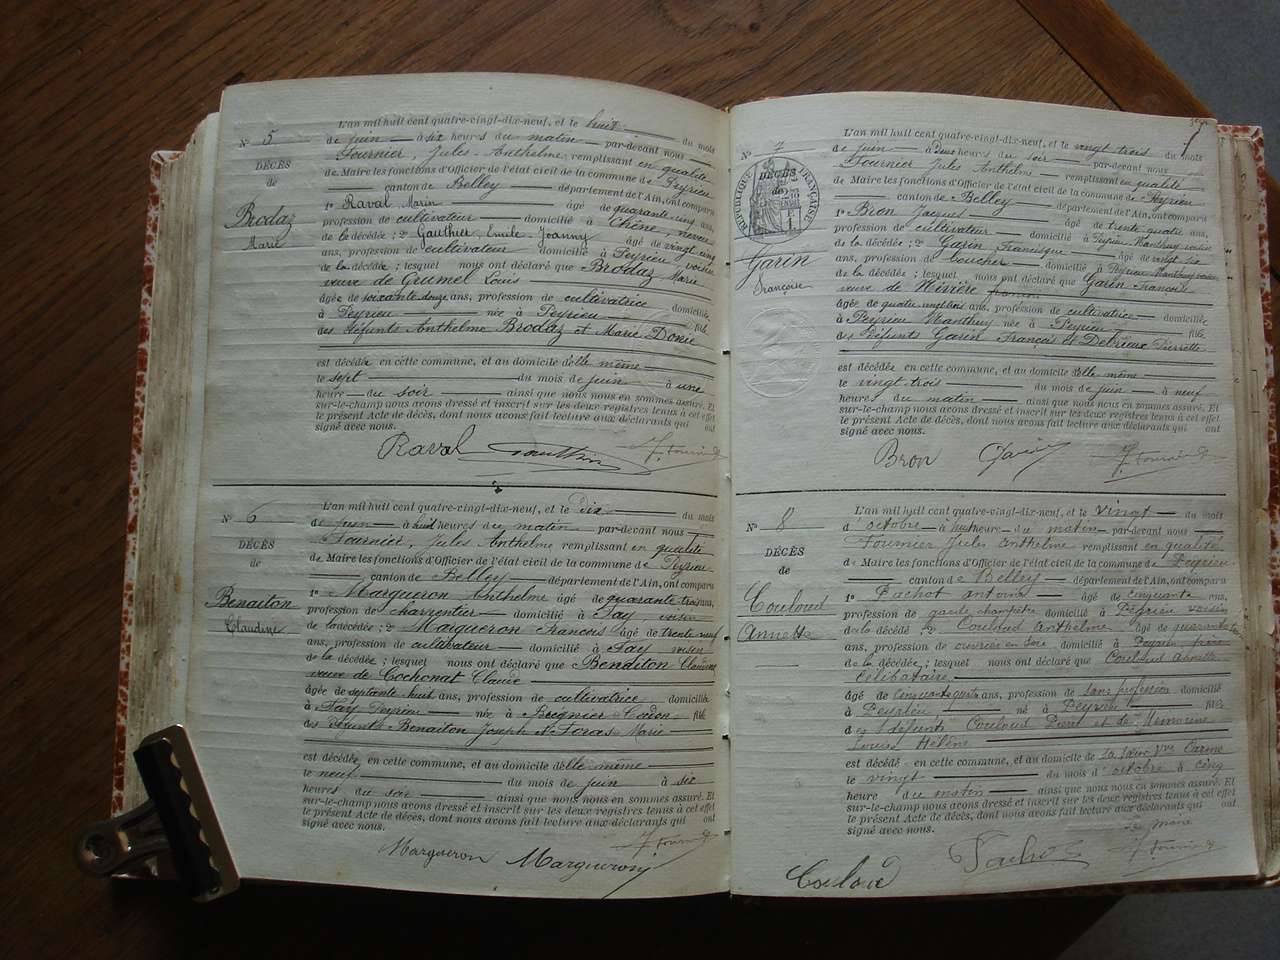 N° 5
DÉCÈS
de
Brodaz
Marie
L'an mil huit cent quatre-vingt-dix-neuf, et le huit du mois
de juin à six heures du matin par-devant nous
Fournier, Jules-Anthelme, remplissant en qualité
de Maire les fonctions d'Officier de l'état civil de la commune de Peyrieu
canton de Belley département de l'Ain, ont comparu
1° Raval Marin âgé de quarante cinq ans,
profession de cultivateur domicilié à Chêne, neveu
de la décédée ; 2° Gauthier Emile Joanny âgé de vingt cinq
ans, profession de cultivateur domicilié à Peyrieu voisin
de la décédée ; lesquels nous ont déclaré que Brodaz Marie
veuve de Grumel Louis
âgée de soixante douze ans, profession de cultivatrice domiciliée
à Peyrieu née à Peyrieu fille
des défunts Anthelme Brodaz et Marie Donie
est décédée en cette commune, et au domicile d'elle même
le sept du mois de juin à une
heure du soir ainsi que nous nous en sommes assuré. Et
sur-le-champ nous avons dressé et inscrit sur les deux registres tenus à cet effet
le présent Acte de décès, dont nous avons fait lecture aux déclarants qui ont
signé avec nous.
Raval Gauthier J. Fournier
N° 6
DÉCÈS
de
Benaiton
Claudine
L'an mil huit cent quatre-vingt-dix-neuf, et le dix du mois
de juin à huit heures du matin par-devant nous
Fournier, Jules Anthelme remplissant en qualité
de Maire les fonctions d'Officier de l'état civil de la commune de Peyrieu
canton de Belley département de l'Ain, ont comparu
1° Margueron Anthelme âgé de quarante trois ans,
profession de charpentier domicilié à Fay voisin
de la décédée ; 2° Margueron François âgé de trente neuf
ans, profession de cultivateur domicilié à Fay voisin
de la décédée ; lesquels nous ont déclaré que Benaiton Claudine
veuve de Cochonat Claude
âgée de septante huit ans, profession de cultivatrice domiciliée
à Fay Peyrieu née à Brégnier Cordon fille
des défunts Benaiton Joseph et Marie
est décédée en cette commune, et au domicile d'elle même
le neuf du mois de juin à six
heures du soir ainsi que nous nous en sommes assuré. Et
sur-le-champ nous avons dressé et inscrit sur les deux registres tenus à cet effet
le présent Acte de décès, dont nous avons fait lecture aux déclarants qui ont
signé avec nous.
Margueron Margueron J. Fournier
N° 7
RÉPUBLIQUE FRANÇAISE
DÉCÈS
de
Garin
Françoise
L'an mil huit cent quatre-vingt-dix-neuf, et le vingt trois du mois
de juin à deux heures du soir par-devant nous
Fournier Jules Anthelme remplissant en qualité
de Maire les fonctions d'Officier de l'état civil de la commune de Peyrieu
canton de Belley département de l'Ain, ont comparu
1° Bron Jacques âgé de trente quatre ans,
profession de cultivateur domicilié à Peyrieu Nanthuy voisin
de la décédée ; 2° Garin Francisque âgé de vingt six
ans, profession de boucher domicilié à Peyrieu Nanthuy voisin
de la décédée ; lesquels nous ont déclaré que Garin Françoise
veuve de Rivière
âgée de quatre vingt trois ans, profession de cultivatrice domiciliée
à Peyrieu Nanthuy née à Peyrieu fille
des défunts Garin François et Delrieux Pierrette
est décédée en cette commune, et au domicile d'elle même
le vingt trois du mois de juin à neuf
heures du matin ainsi que nous nous en sommes assuré. Et
sur-le-champ nous avons dressé et inscrit sur les deux registres tenus à cet effet
le présent Acte de décès, dont nous avons fait lecture aux déclarants qui ont
signé avec nous.
Bron Garin J. Fournier
N° 8
DÉCÈS
de
Couloud
Annette
L'an mil huit cent quatre-vingt-dix-neuf, et le vingt du mois
d'octobre à huit heure du matin par-devant nous
Fournier Jules Anthelme remplissant en qualité
de Maire les fonctions d'Officier de l'état civil de la commune de Peyrieu
canton de Belley département de l'Ain, ont comparu
1° Pachot antoine âgé de cinquante ans,
profession de garde champêtre domicilié à Peyrieu voisin
de la décédé ; 2° Couloud Anthelme âgé de quarante
ans, profession de ouvrier en soie domicilié à Peyrieu frère
de la décédée ; lesquels nous ont déclaré que Couloud annette
célibataire
âgé de cinquante quatre ans, profession de sans profession domicilié
à Peyrieu né à Peyrieu fille
des défunts Couloud Pierre et de
Louise Hélène
est décédé en cette commune, et au domicile de sa soeur
le vingt du mois d'octobre à cinq
heure du matin ainsi que nous nous en sommes assuré. Et
sur-le-champ nous avons dressé et inscrit sur les deux registres tenus à cet effet
le présent Acte de décès, dont nous avons fait lecture aux déclarants qui ont
signé avec nous.
Le Maire
Couloud Pachot J. Fournier